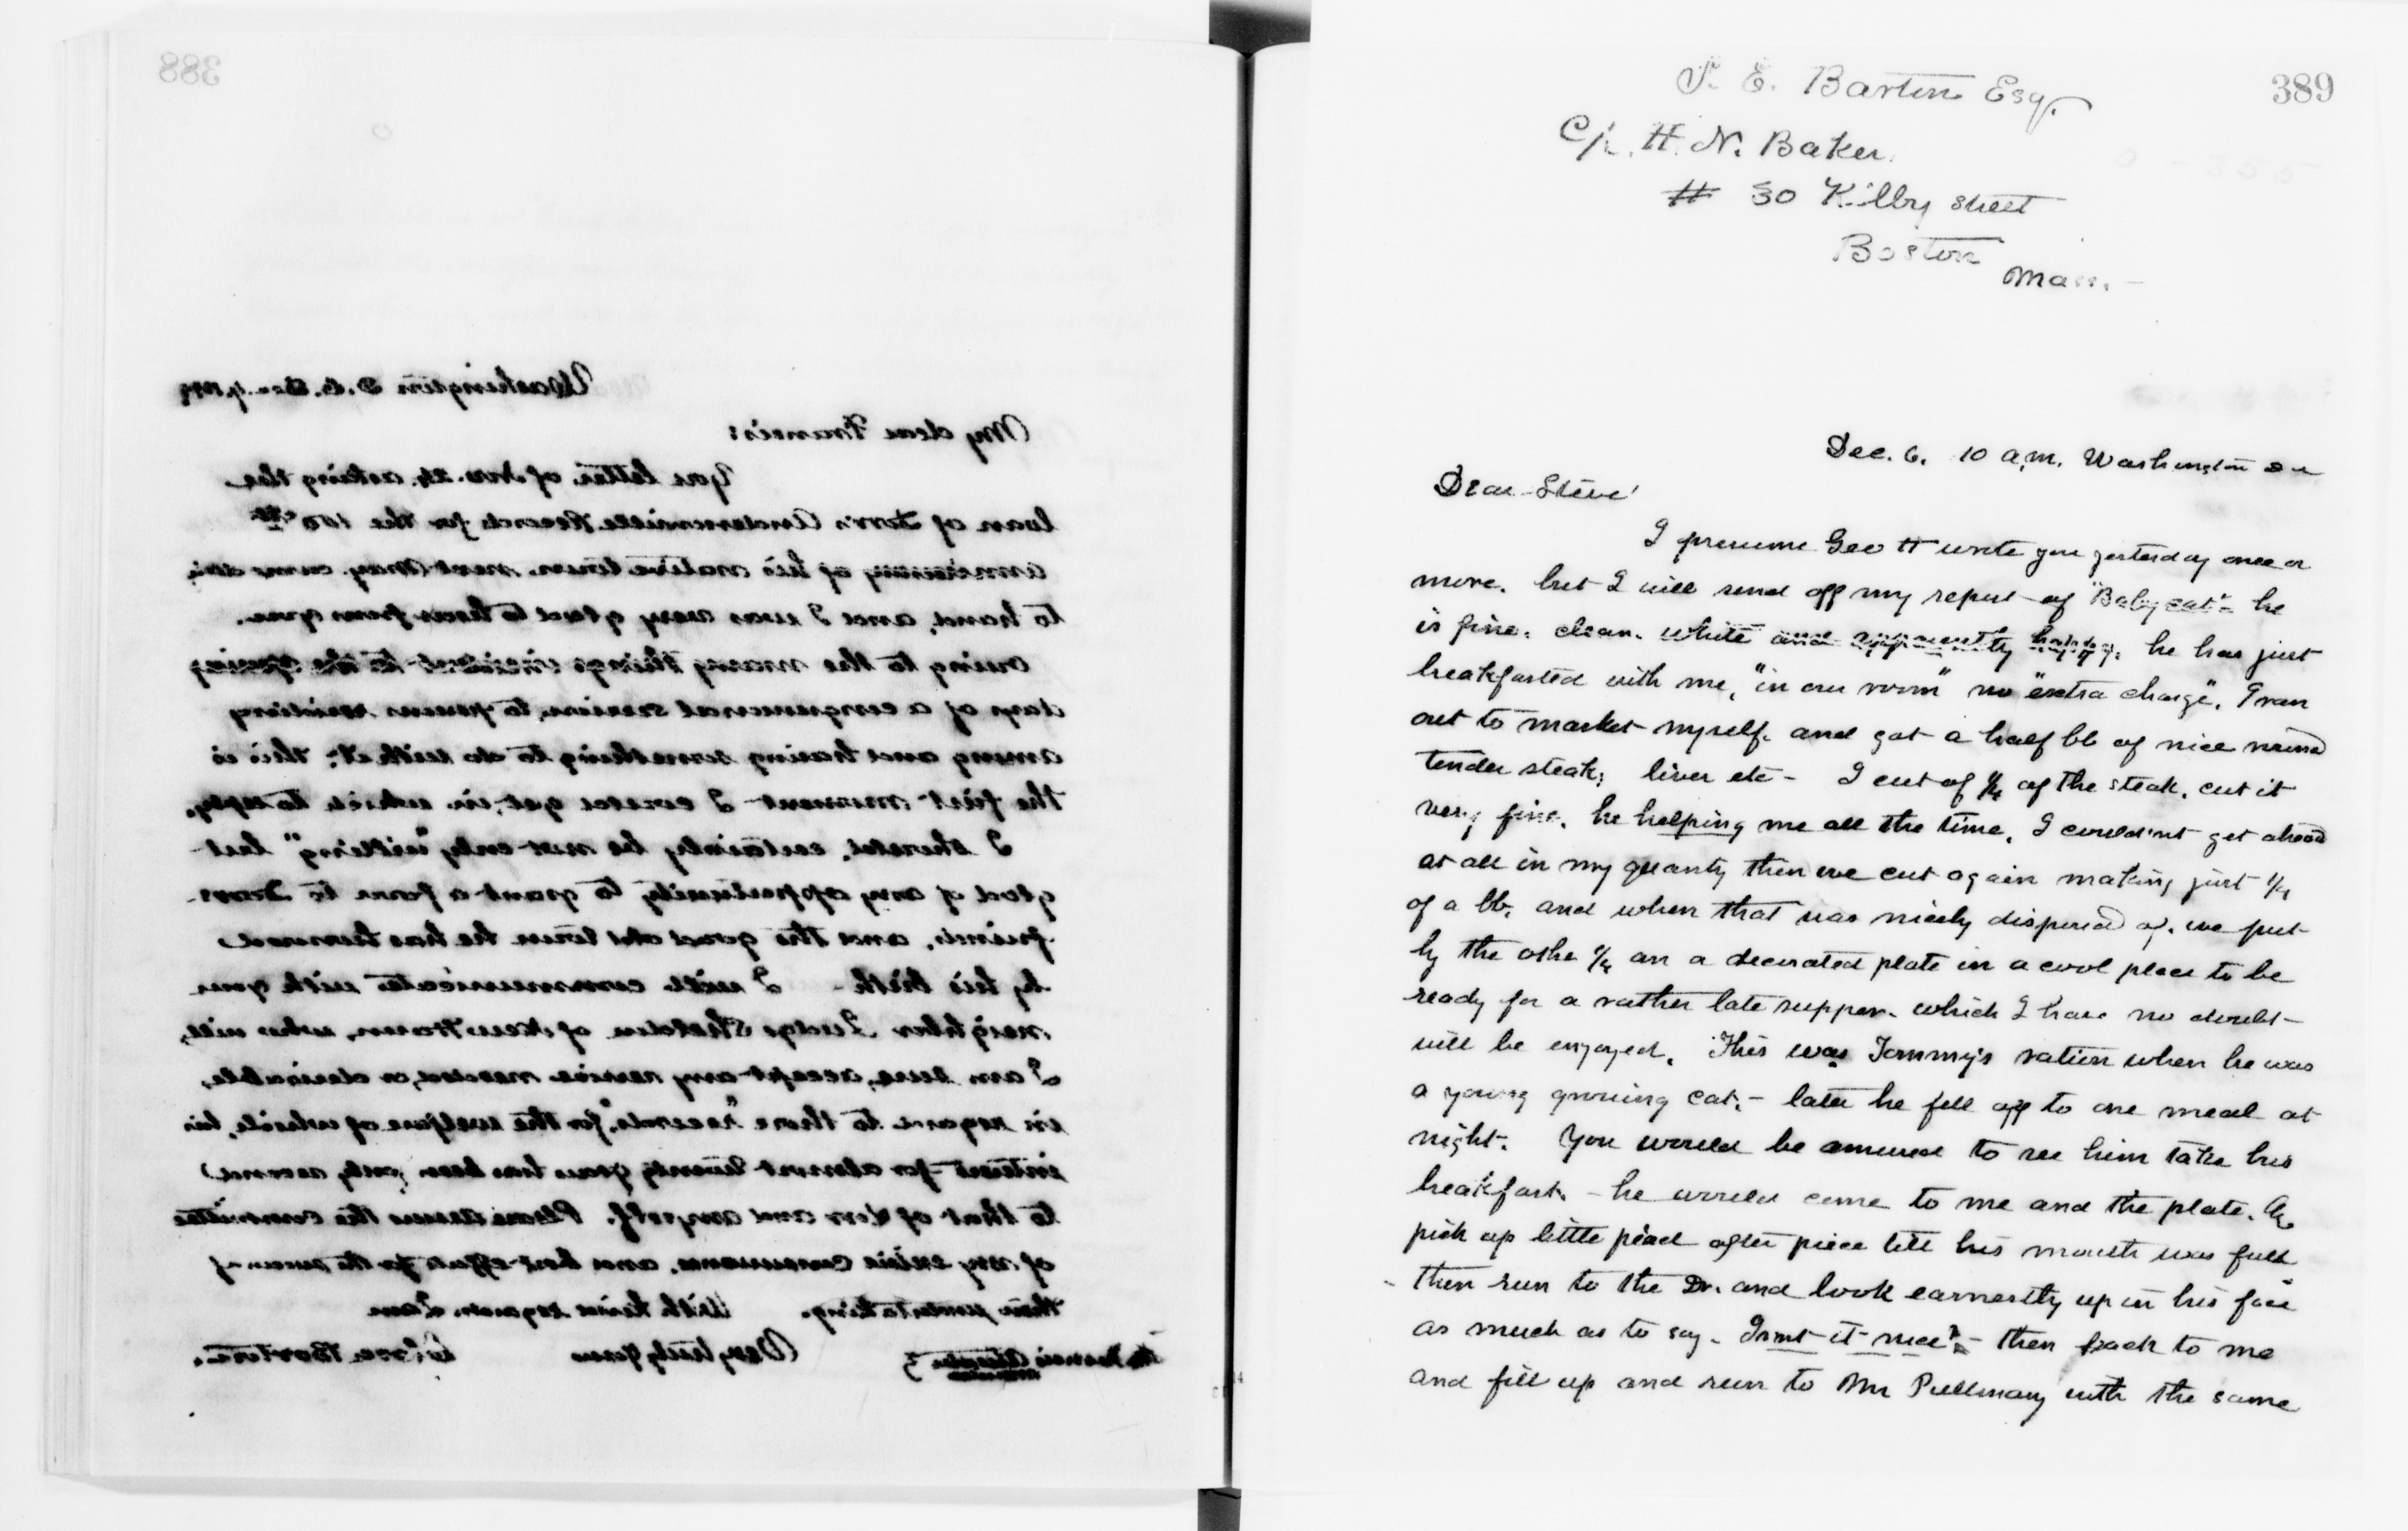 388
Washington D.C. Dec. 7. 1899
My dear Francis:
Your letter of Nov. 24, asking the
loan of Dorr's Andersonville Records for the 100th
anniversary of his native town, next May, came duly
to hand, and I was very glad to hear from you.
Owing to the many things incident to the opening
days of a congressional session, to persons residing
among and having something to do with it; this is
the first moment I could get, in which to reply.
I should, certainly be not only "willing" but
glad of any opportunity to grant a favor to Dorr's
friends, and the good old town he has honored
by his birth - I will communicate with your
neighbor Judge Sheldon of New Haven, who will,
I am sure, accept any service needed, or desirable,
in regard to those "records", for the welfare of which, his
interest for almost twenty years has been only second
to that of Dorr and myself. Please assure the committee
of my entire concurrence, and best efforts for the success of
their undertaking. With kind regards I am
Very truly yours Clara Barton.
Mr Francis Atwater
Meriden
389
S. E. Barton Esq.
C/o. H. N. Baker.
# 30 Kilby Street
Boston
Mass. -
Dec. 6. 10 a.m. Washington D C
Dear Steve'
I presume Geo H wrote you yesterday once or
more. but I will send off my report of "Baby cat" - he
is fine. clean. white and apparently happy. he has just
breakfasted with me, "in our room" no "extra charge". I ran
out to market myself. and got a half lb of nice round
tender steak; liver etc - I cut of ½ of the steak. cut it
very fine. he helping me all the time. I could'nt get ahead
at all in my quanty then we cut again making just ¼
of a lb. and when that was nicely disposed of. we put
by the othe ¼ on a decorated plate in a cool place to be
ready for a rather late supper. which I have no doubt -
will be enjoyed. This was Tommy's ration when he was
a young growing cat. - later he fell off to one meal at
night. You would be amused to see him take his
breakfast. - he would come to me and the plate.
pick up little piead after piece till his mouth was full
then run to the Dr. and look earnestly up in his face
as much as to say - Isnt it nice? - then back to me
and fill up and run to Mr Pullman with the same